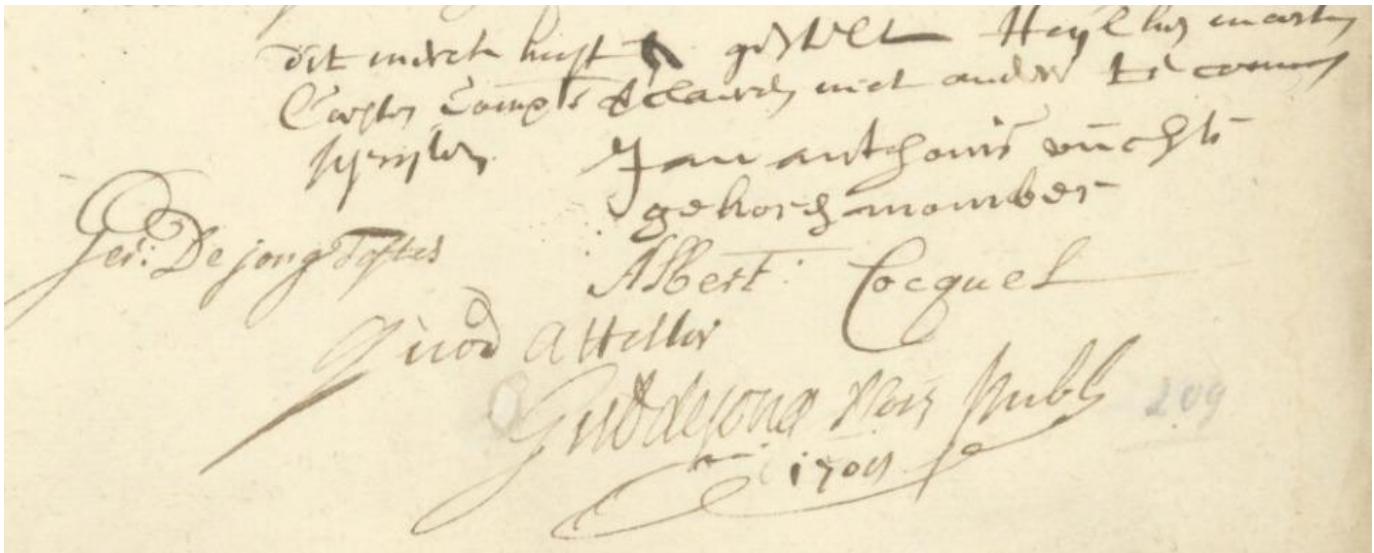 dit merck heeft gestelt Heyltus
declareerde niet anders te connen
schryven
Jan anthonis vuchts
gekoren momber
Ger: De jong Testes
Albert: Cocquel
Quod Attestor
de jong Nots Publ
209
1709